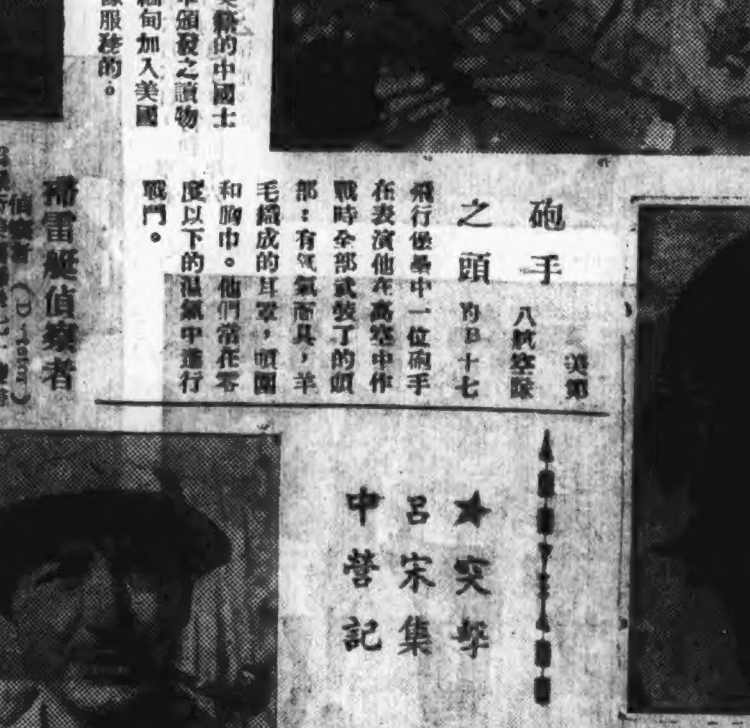 美籍的中國士
頒發之讀物
緬甸加入美國
服務的。
砲手
之頭
美第
八航空隊
的B十七
飛行堡壘中一位砲手
在表演他在高空中作
戰時全部武裝了的頭
部:有氧氣面具,羊
毛織成的耳罩,頸圍
和胸巾。他們常在零
度以下的溫氣中進行
戰鬥。
掃雷艇偵察者
偵察者
★突擊
呂宋集
中營記